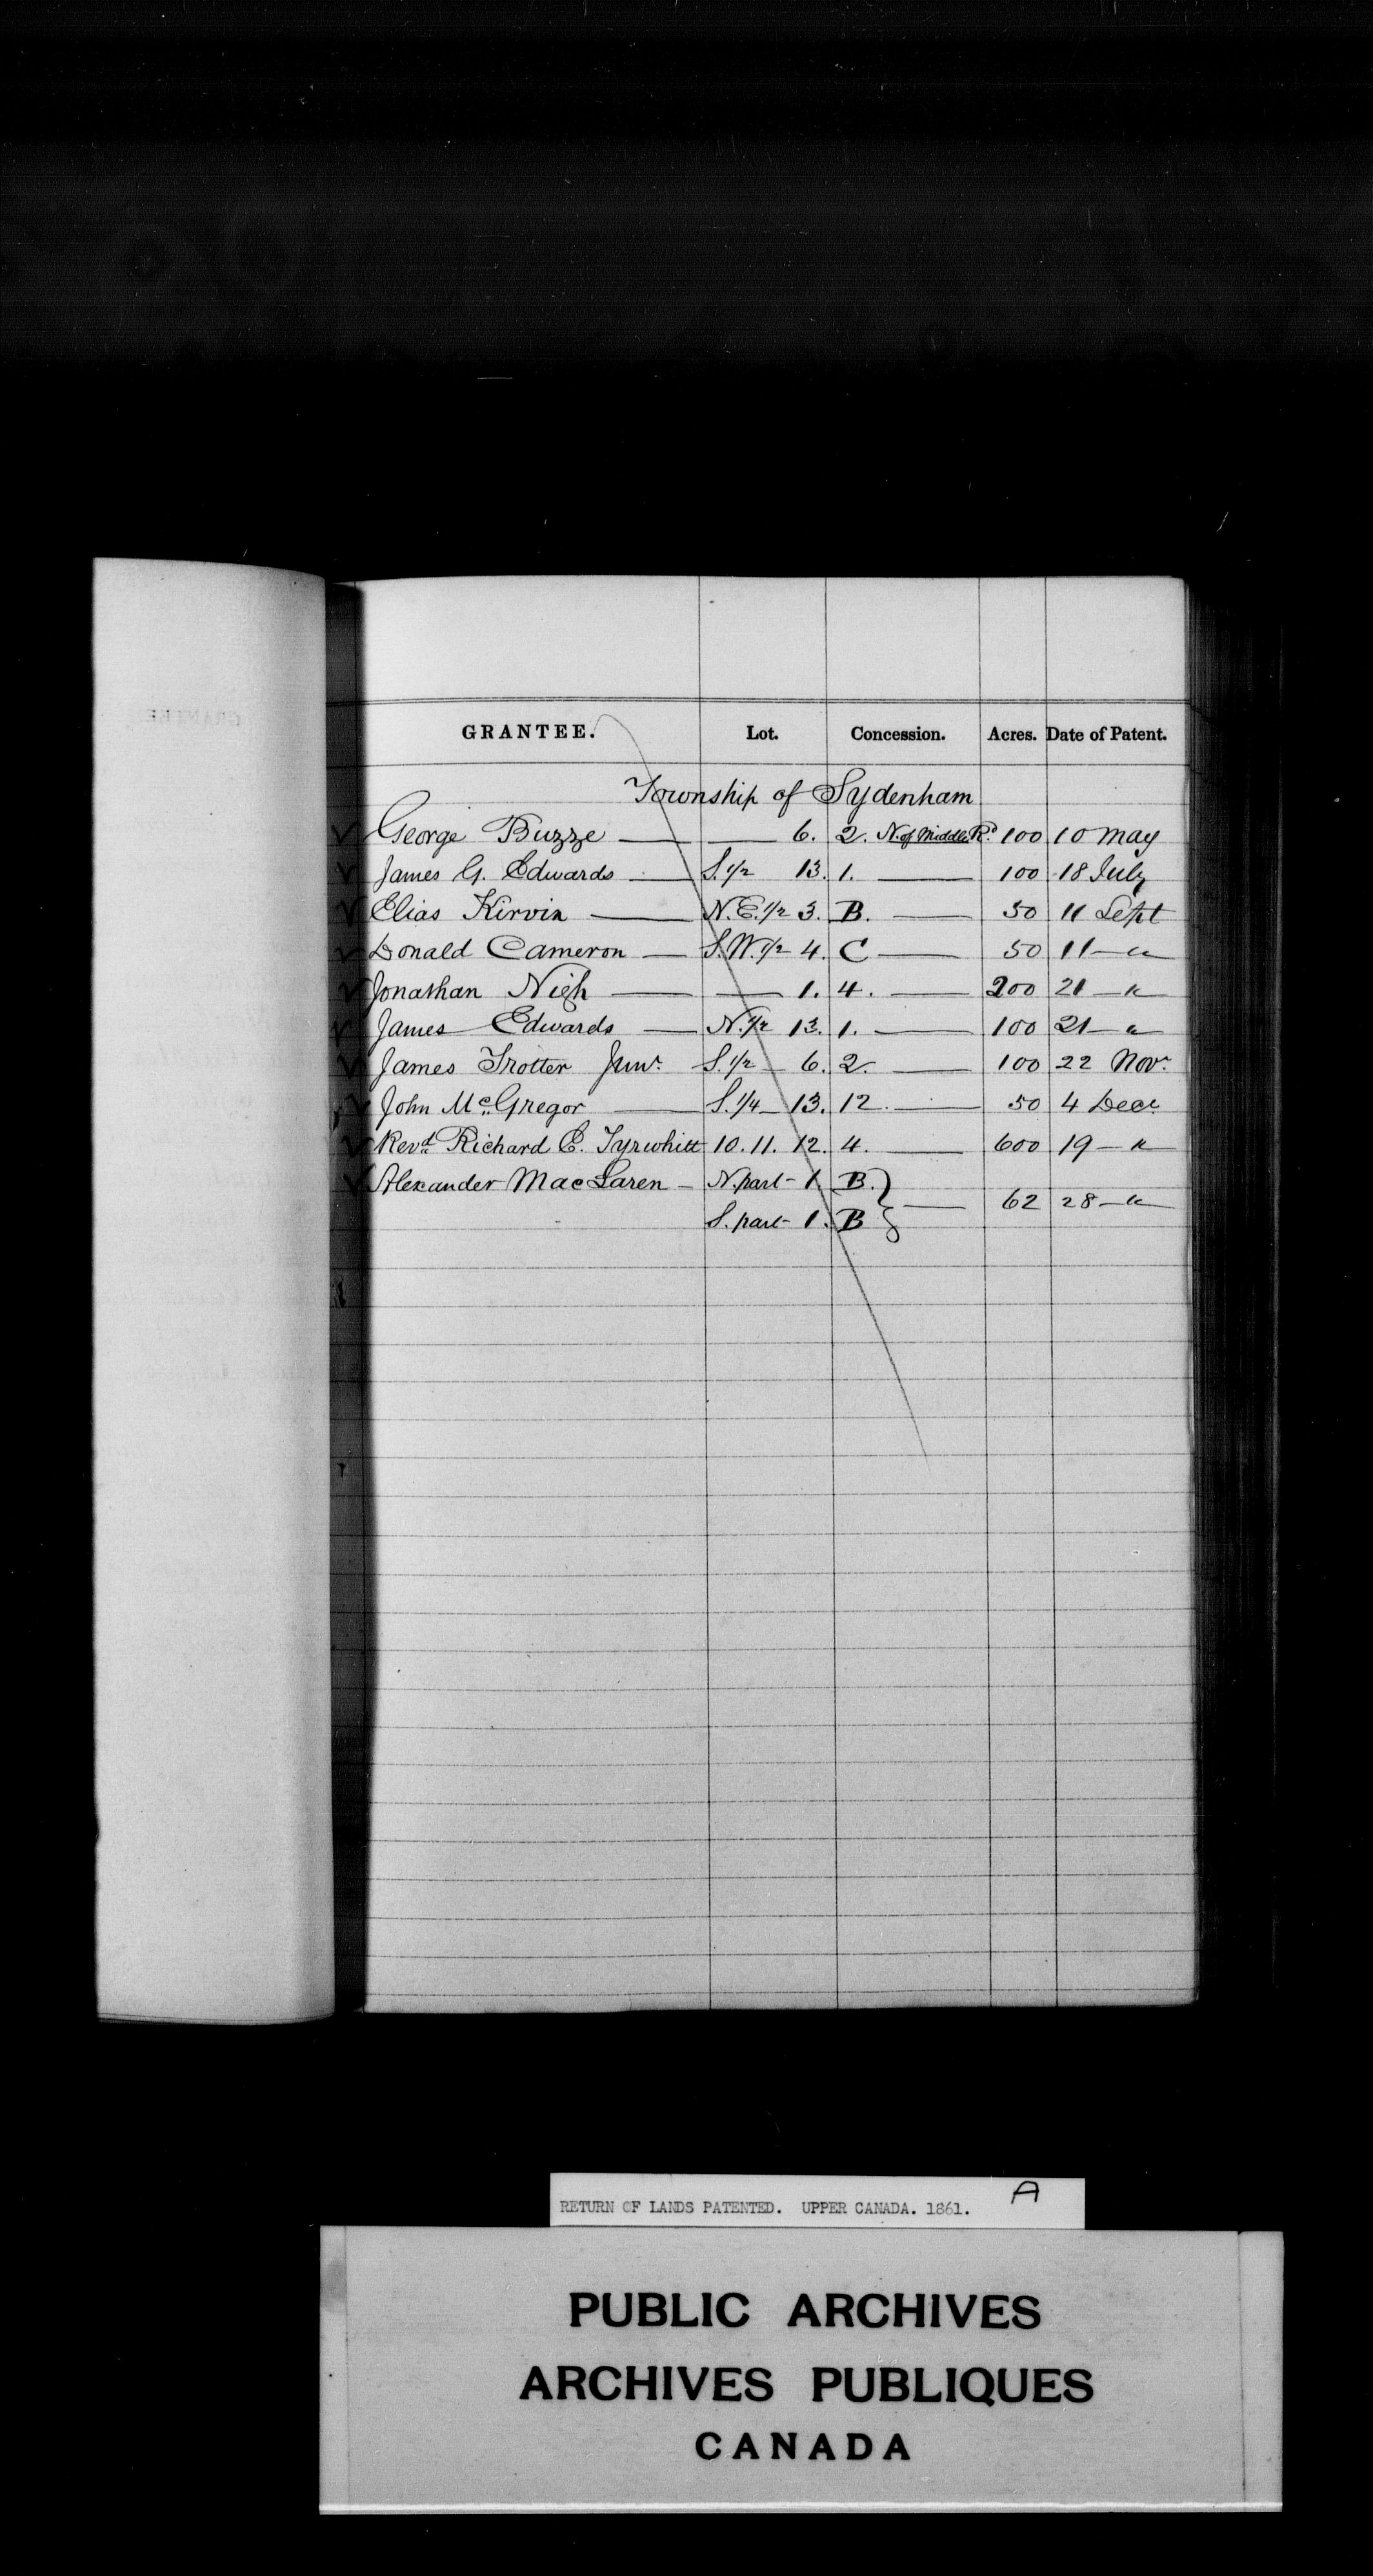 GRANTEE. Lot. Concession. Acres. Date of Patent.
Township of Sydenham
George Buzze — — 6. 2. N. of Middle Rd. 100 10 May
James G. Edwards — S. 1/2 13. 1. — 100 18 July
Elias Kirvin — N.E. 1/2 3. B. — 50 11 Sept
Donald Cameron — S.W. 1/2 4. C — 50 11 — "
Jonathan Nigh — — 1. 4. — 200 21 — "
James Edwards — N. 1/2 13. 1. — 100 21 — "
James Trotter Junr. S. 1/2 — 6. 2. — 100 22 Novr.
John McGregor — S. 1/4 — 13. 12. — 50 4 Decr.
Revd. Richard E. Tyrwhitt 10. 11. 12. 4. — 600 19 — "
Alexander MacLaren — N. part — 1. B. } — 62 28 — "
S. part — 1. B
RETURN OF LANDS PATENTED. UPPER CANADA. 1861. A
PUBLIC ARCHIVES
ARCHIVES PUBLIQUES
CANADA